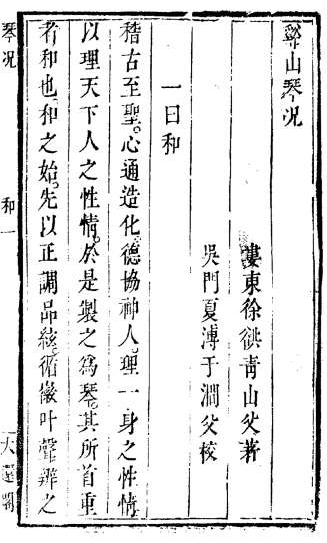 谿山琴况
婁東徐𤣱青山父著
吳門夏溥于澗父校
一曰和
稽古至聖。心通造化。德協神人。理一身之性情。
以理天下人之性情。於是製之為琴。其所首重
者和也。和之始。先以正調品絃。循徽叶聲。辨之
琴况
和
一
大還閣